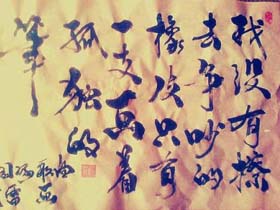 我没有擦
去争吵的
橡皮只有
一支画着
孤独的
笔